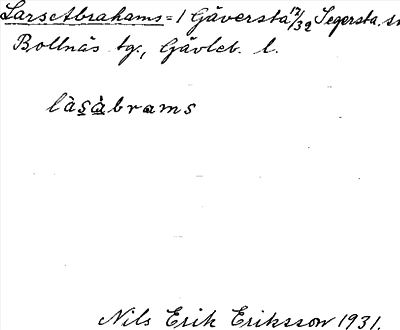 LarsAbrahams = 1 Gäversta 12/32 Segersta. sn
Bollnäs tg, Gävleb. l.
làs̱à̱brams
Nils Erik Eriksson 1931.